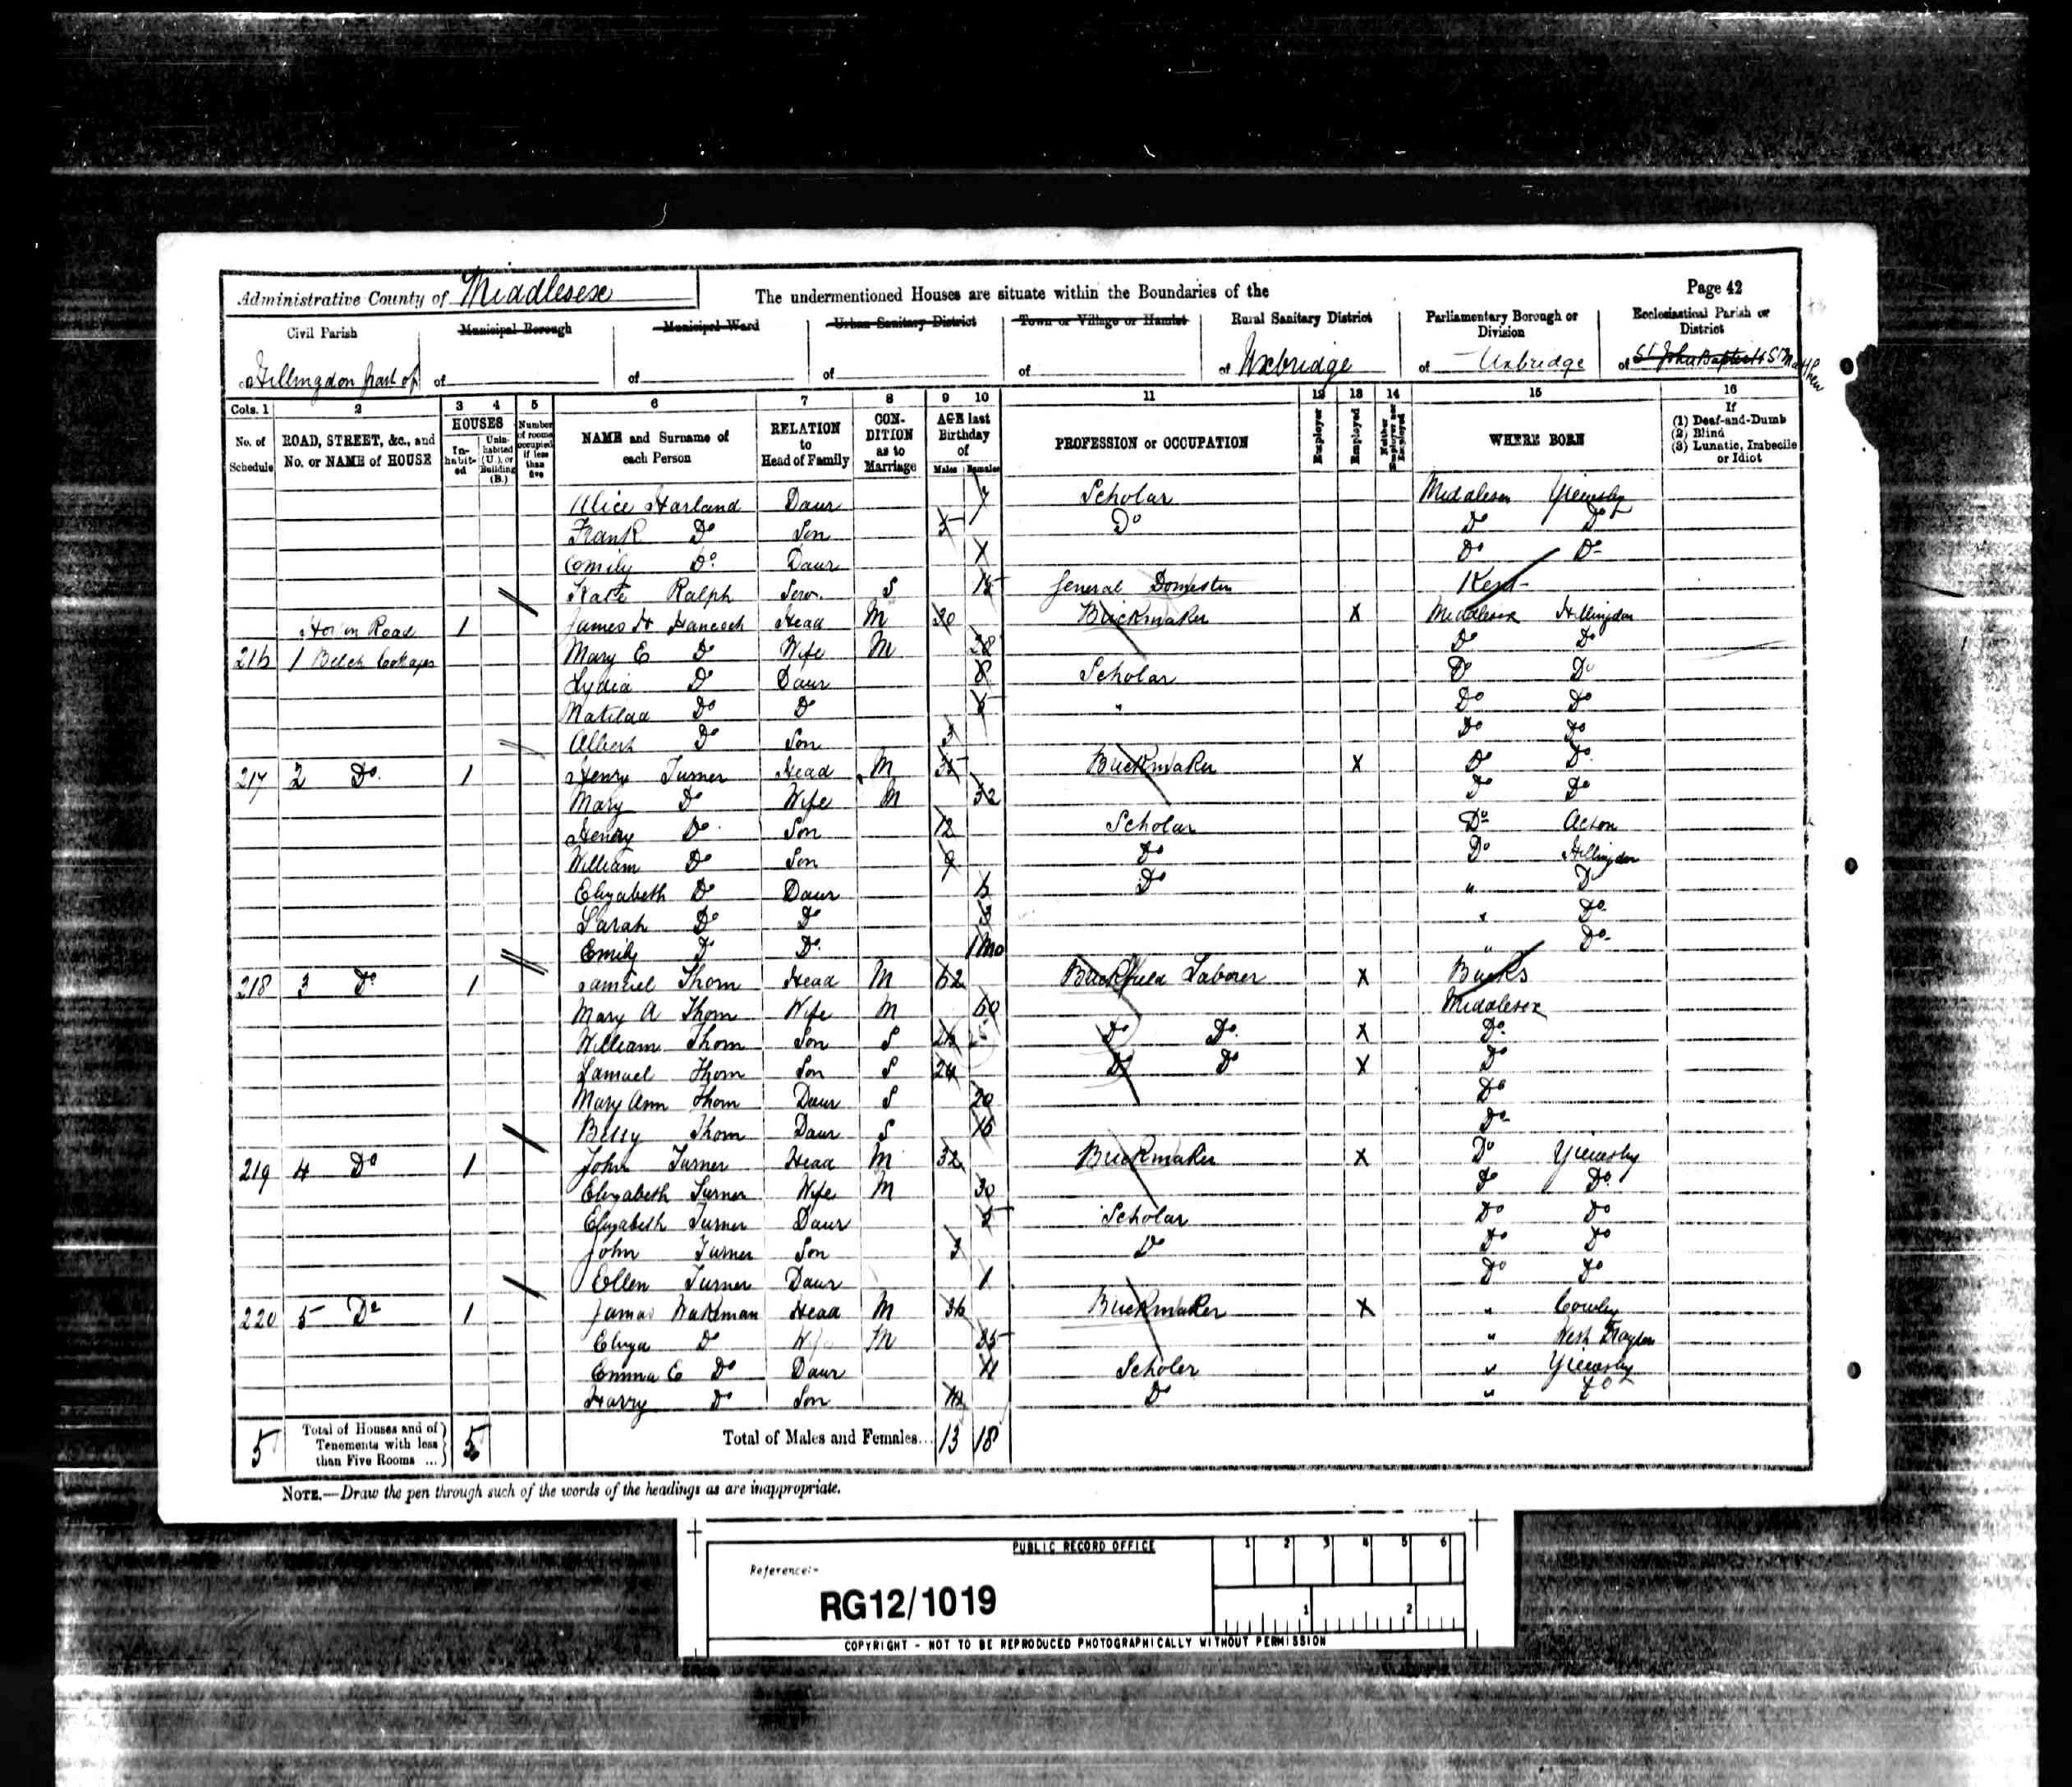 Administrative County of Middlesex
The undermentioned Houses are situate within the Boundaries of the
Page 42
Civil Parish
Municipal Borough
Municipal Ward
Urban Sanitary District
Town or Village or Hamlet
Rural Sanitary District
Parliamentary Borough or Division
Ecclesiastical Parish or District
of Hillingdon part of
of
of
of
of
of Uxbridge
of Uxbridge
of St John Baptist St Matthew
Cols. 1 2 3 4 5 6 7 8 9 10 11 12 13 14 15 16
No. of Schedule
ROAD, STREET, &c., and No. or NAME of HOUSE
HOUSES
In-habit-ed
Unin-habited (U.), or Building (B.)
Number of rooms occupied if less than five
NAME and Surname of each Person
RELATION to Head of Family
CON-DITION as to Marriage
AGE last Birthday of
Males Females
PROFESSION or OCCUPATION
Employer
Employed
Neither Employer nor Employed
WHERE BORN
If
(1) Deaf-and-Dumb
(2) Blind
(3) Lunatic, Imbecile or Idiot
Alice Harland Daur 7 Scholar Middlesex Yiewsley
Frank Do Son 5 Do Do Do
Emily Do Daur Do Do
Kate Ralph Serv S 15 General Domestic Kent
Road 1 James H Hancock Head M 30 Brickmaker X Middlesex Hillingdon
216 1 Cottages Mary E Do Wife M 28 Do Do
Lydia Do Daur 8 Scholar Do Do
Matilda Do Do " Do Do
Albert Do Son 3 Do Do
217 2 Do 1 Henry Turner Head M 35 Brickmaker X Do Do
Mary Do Wife M 32 Do Do
Henry Do Son 12 Scholar Do Acton
William Do Son 9 Do Do Hillingdon
Elizabeth Do Daur 6 Do " Do
Sarah Do Do " Do
Emily Do Do 1 Mo " Do
218 3 Do 1 Samuel Thorn Head M 62 Brickfield Laborer X Bucks
Mary A Thorn Wife M 60 Middlesex
William Thorn Son S Do Do X Do
Samuel Thorn Son S 24 Do Do X Do
Mary Ann Thorn Daur S 20 Do
Betsy Thorn Daur S 16 Do
219 4 Do 1 John Turner Head M 32 Brickmaker X Do Yiewsley
Elizabeth Turner Wife M 30 Do Do
Elizabeth Turner Daur 5 Scholar Do Do
John Turner Son 3 Do Do Do
Ellen Turner Daur 1 Do Do
220 5 Do 1 James Wakeman Head M 36 Brickmaker X " Cowley
Eliza Do Wife M 35 " West Drayton
Emma E Do Daur 11 Scholer " Yiewsley
Harry Do Son Do " Do
5
Total of Houses and of Tenements with less than Five Rooms ...
5
Total of Males and Females... 13 18
NOTE.—Draw the pen through such of the words of the headings as are inappropriate.
PUBLIC RECORD OFFICE
1 2 3 4 5 6
Reference:-
RG12/1019
1 2
COPYRIGHT - NOT TO BE REPRODUCED PHOTOGRAPHICALLY WITHOUT PERMISSION